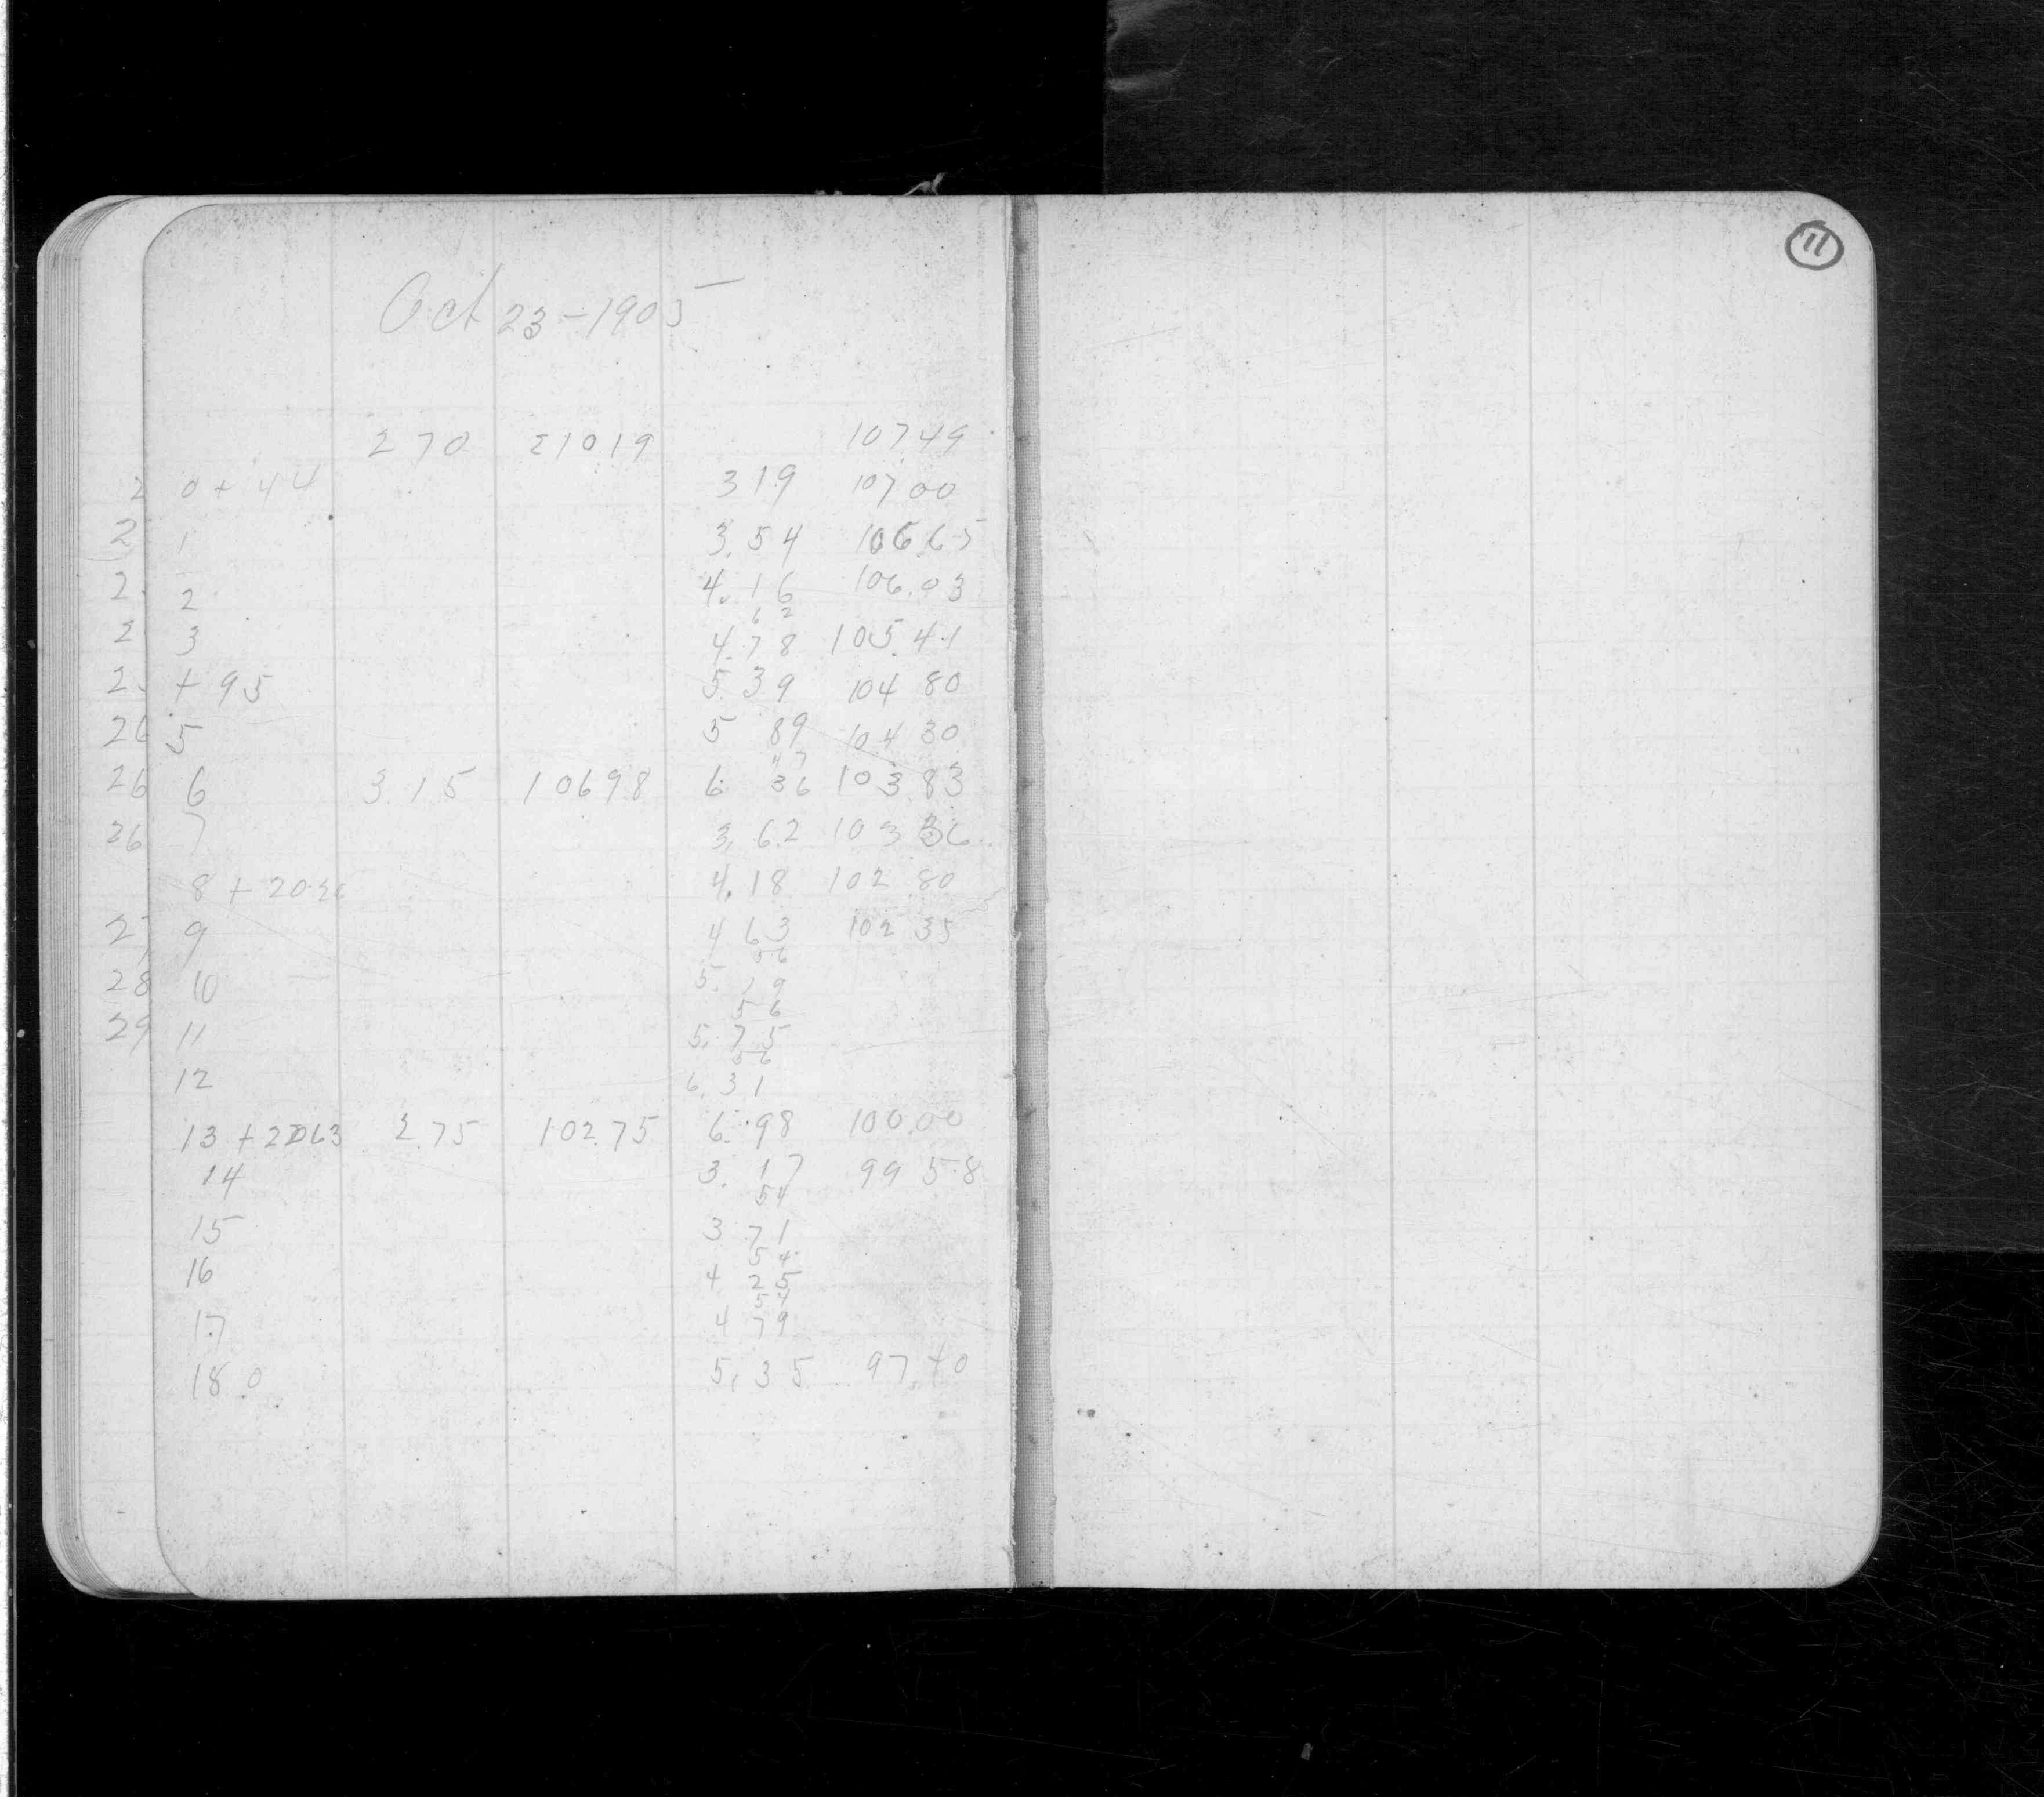 11
Oct 23-1905
2 70 21019 107.49
2 0+44 3 19 107 00
2 1 3.54 106.65
2 2 4.16 106.03
6 2
2 3 4.78 105.41
2 +95 5.39 104 80
26 5 5 89 104 30
47
26 6 3.15 10698 6 36 103 83
26 7 3.62 103 36
8+20 4.18 102 80
27 9 4 63 102 35
66
28 10 5. 29
56
29 11 5.75
56
12 6.31
13+2063 2.75 102.75 6.98 100.00
14 3. 17 99 58
54
15 3 71
54
16 4 25
54
17 4 79
18.0 5.35 97.40